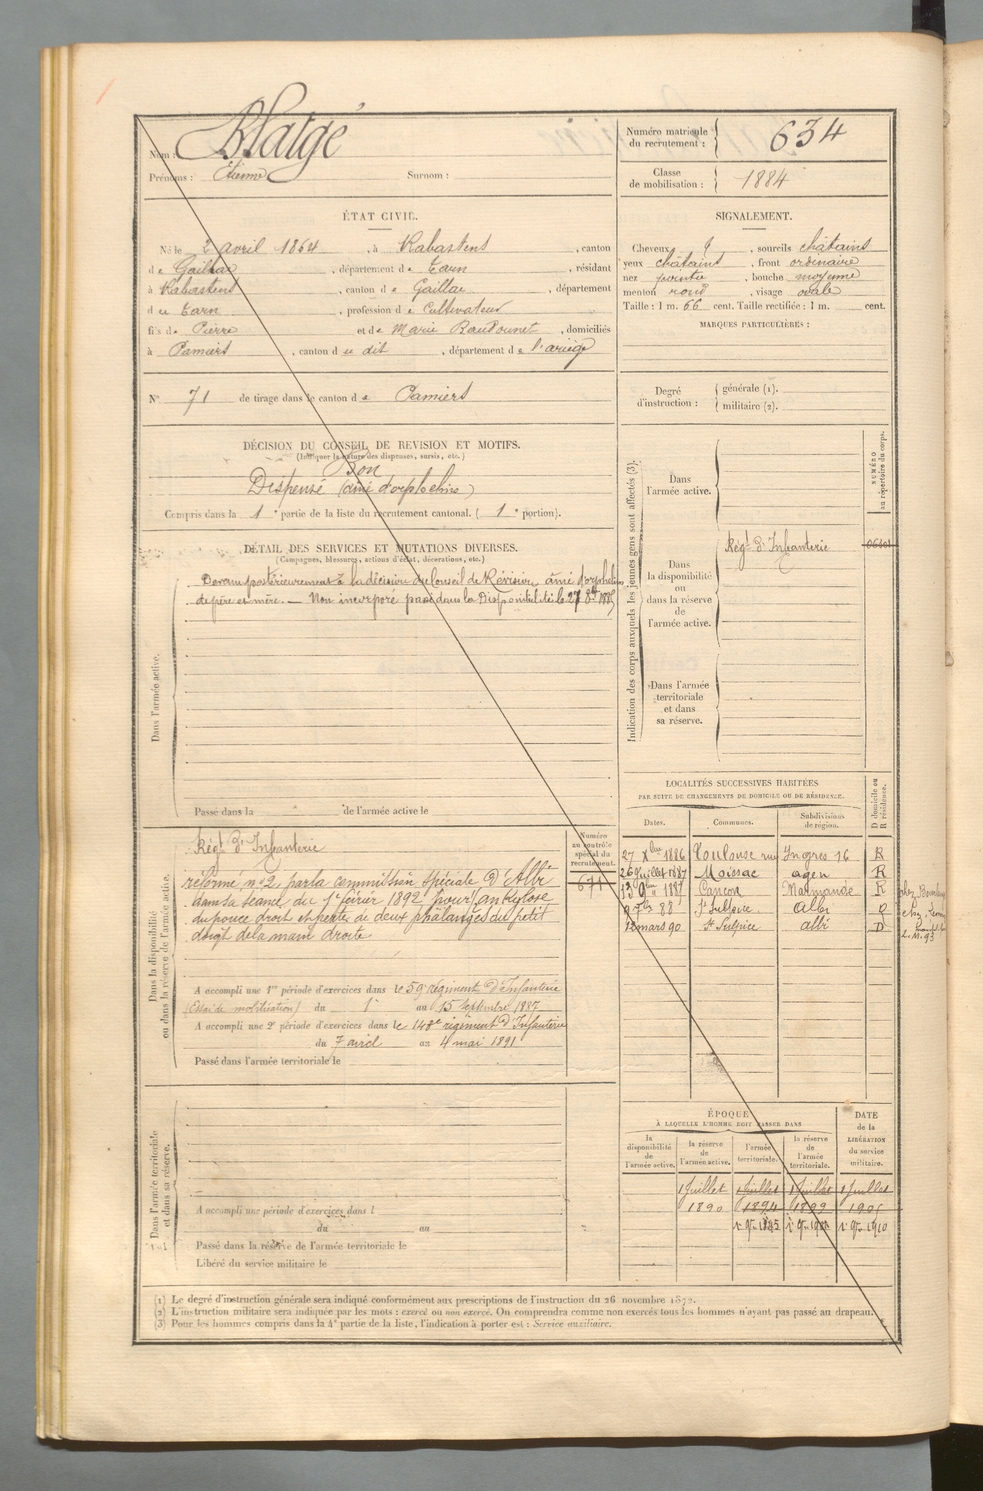 Nom : Blatgé
Prénoms : Étienne Surnom :
Numéro matricule du recrutement : 634
Classe de mobilisation : 1884
ÉTAT CIVIL.
Né le 2 avril 1864, à Rabastens, canton
de Gaillac, département de Tarn, résidant
à Rabastens, canton de Gaillac, département
du Tarn, profession de Cultivateur
fils de Pierre et de Marie, domiciliés
à Pamiers, canton du dit, département de l'ariège
N° 71 de tirage dans le canton de Pamiers
SIGNALEMENT.
Cheveux, sourcils châtains
yeux châtains, front ordinaire
nez pointu, bouche moyenne
menton rond, visage ovale
Taille : 1 m. 66 cent. Taille rectifiée : 1 m. cent.
MARQUES PARTICULIÈRES :
Degré d'instruction : générale (1).
militaire (2).
DÉCISION DU CONSEIL DE REVISION ET MOTIFS.
(Indiquer la nature des dispenses, sursis, etc.)
Bon
Dispensé (aîné d'orphelins)
Compris dans la 1e partie de la liste du recrutement cantonal. (1e portion).
DÉTAIL DES SERVICES ET MUTATIONS DIVERSES.
(Campagnes, blessures, actions d'éclat, décorations, etc.)
Dans l'armée active.
Devenu postérieurement à la décision du Conseil de Révision aîné d'orphelins
de père et mère. — Non incorporé passé dans la Disponibilité le 27 8bre 1885
Passé dans la de l'armée active le
Indication des corps auxquels les jeunes gens sont affectés (3).
NUMÉRO au répertoire du corps.
Dans l'armée active.
Dans la disponibilité ou dans la réserve de l'armée active.
Régt d'Infanterie
Dans l'armée territoriale et dans sa réserve.
Dans la disponibilité ou dans la réserve de l'armée active.
Numéro au contrôle spécial du recrutement.
671
Régt d'Infanterie
réformé n° 2 par la commission spéciale d'Albi
dans sa séance du 1er février 1892 pour ankylose
du pouce droit et perte de deux phalanges du petit
doigt de la main droite
A accompli une 1re période d'exercices dans le 59e régiment d'Infanterie
(Essai de mobilisation) du 1er au 15 Septembre 1887
A accompli une 2e période d'exercices dans le 143e régiment d'Infanterie
du 7 avril au 4 mai 1891
Passé dans l'armée territoriale le
LOCALITÉS SUCCESSIVES HABITÉES
PAR SUITE DE CHANGEMENTS DE DOMICILE OU DE RÉSIDENCE.
Dates. Communes. Subdivisions de région. D domicile ou R résidence.
27 Xbre 1886 Toulouse rue Ingres 16 R
26 Juillet 1887 Moissac agen R
13 9bre 1887 Cancon Marmande R
7bre 88 St Sulpice. Albi
12 mars 90 St Sulpice albi D
Dans l'armée territoriale et dans sa réserve.
A accompli une période d'exercices dans l
du au
Passé dans la réserve de l'armée territoriale le
Libéré du service militaire le
ÉPOQUE
À LAQUELLE L'HOMME DOIT PASSER DANS
la disponibilité de l'armée active. la réserve de l'armée active. l'armée territoriale. la réserve de l'armée territoriale.
DATE de la LIBÉRATION du service militaire.
1 Juillet 1 Juillet 1 Juillet 1 Juillet
1890 1894 1899 1905
1er 9bre 1895 1910
(1) Le degré d'instruction générale sera indiqué conformément aux prescriptions de l'instruction du 26 novembre 1872.
(2) L'instruction militaire sera indiquée par les mots : exercé ou non exercé. On comprendra comme non exercés tous les hommes n'ayant pas passé au drapeau.
(3) Pour les hommes compris dans la 4e partie de la liste, l'indication à porter est : Service auxiliaire.